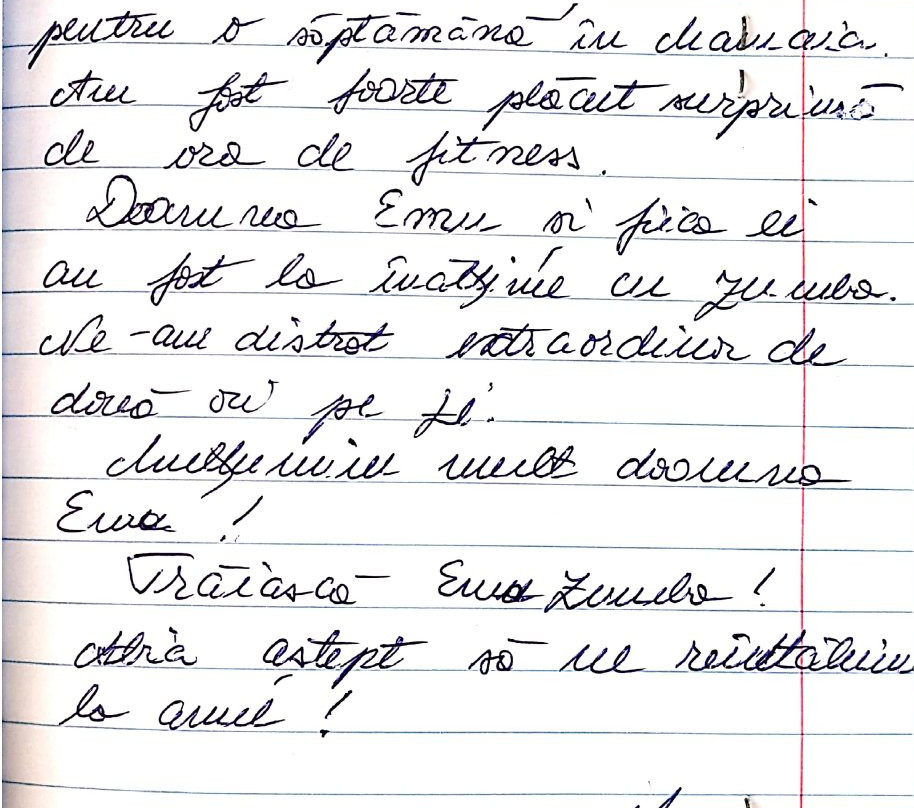 pentru o săptămână în Mamaia.
Am fost foarte plăcut surprinsă
de ora de fitness.
Doamna Ema si fiica ei
au fost la înălțime cu zumba.
Ne-am distrat extraordinar de
două ori pe zi.
Mulțumim mult doamna
Ema!
Trăiască Ema Zumba!
Abia astept să ne reîntâlnim
la anul!